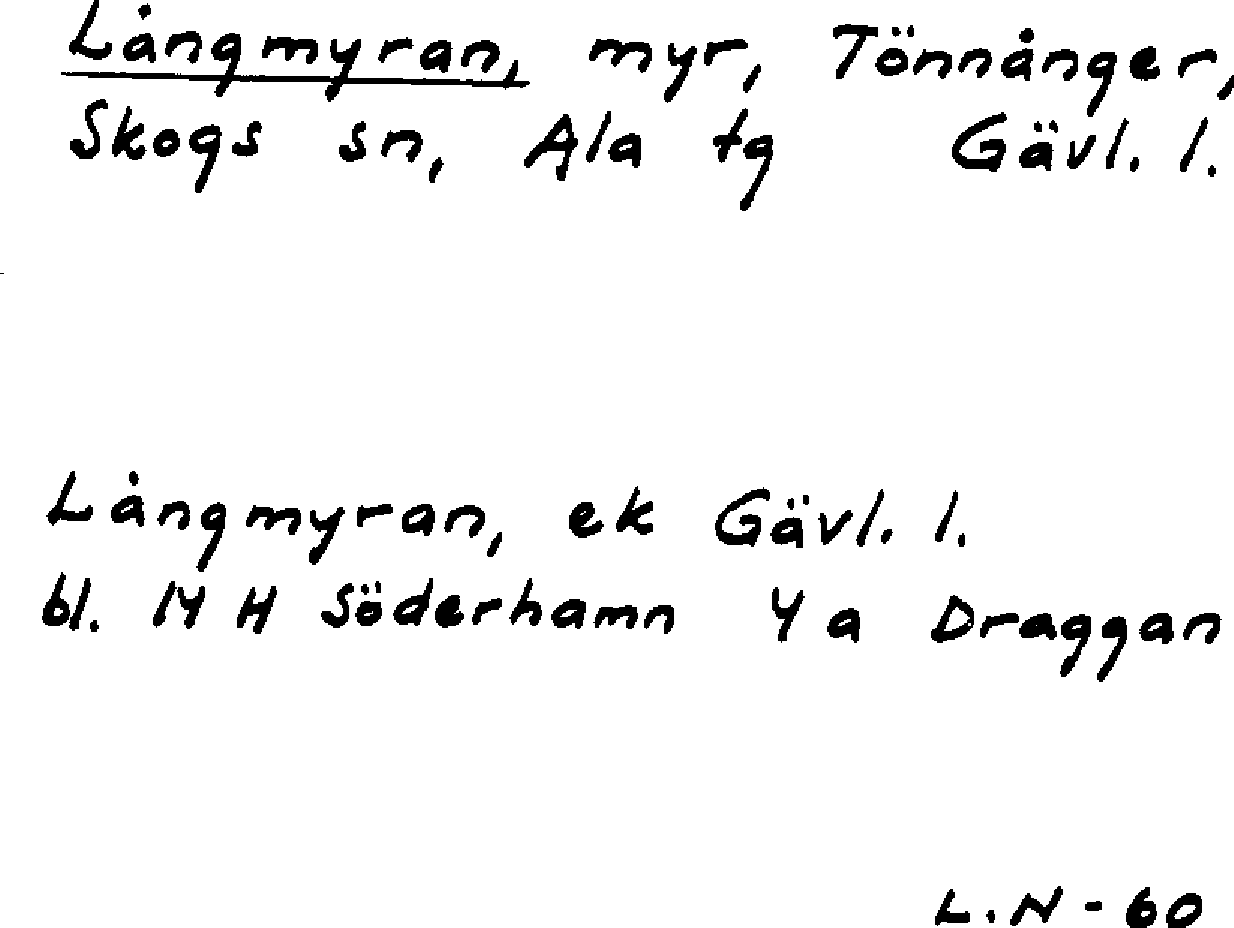 Långmyran, myr, Tönnånger,
Skogs sn, Ala tg Gävl. l.
Långmyran, ek Gävl. l.
bl. 14 H Söderhamn 4 a Draggan
L.N - 60